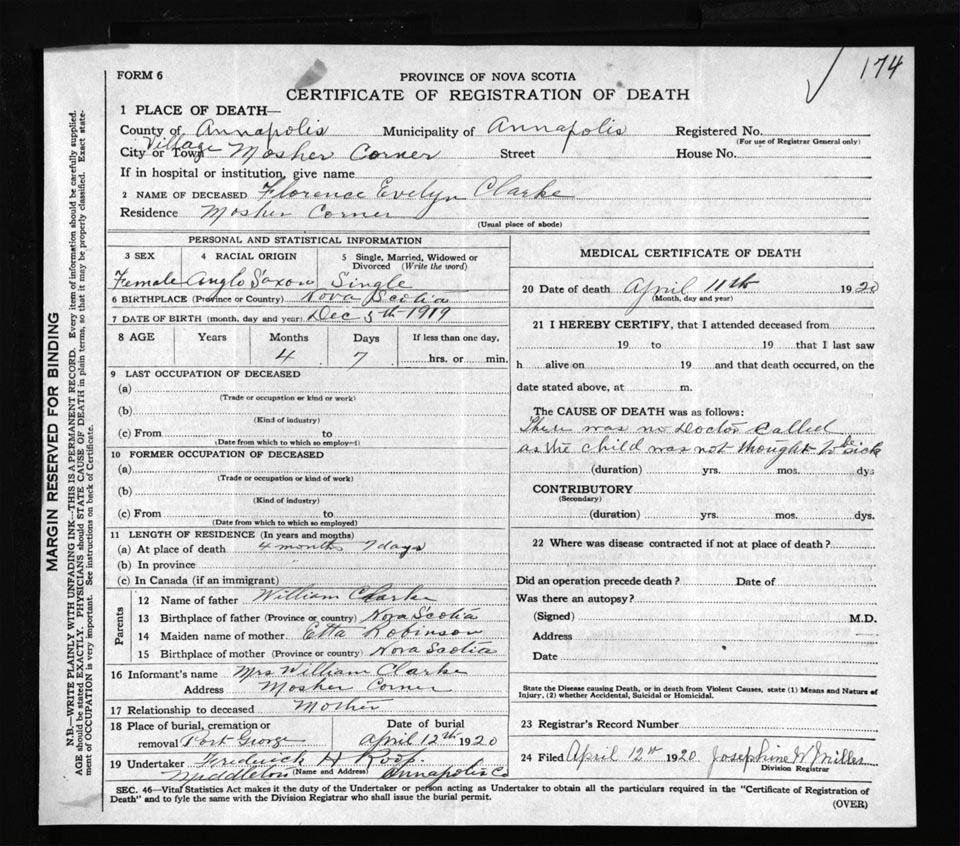 174
FORM 6
PROVINCE OF NOVA SCOTIA
CERTIFICATE OF REGISTRATION OF DEATH
1 PLACE OF DEATH—
County of Annapolis Municipality of Annapolis Registered No.
(For use of Registrar General only)
Village
City or Town Mosher Corner Street House No.
If in hospital or institution, give name
2 NAME OF DECEASED Florence Evelyn Clarke
Residence Mosher Corner
(Usual place of abode)
PERSONAL AND STATISTICAL INFORMATION
3 SEX 4 RACIAL ORIGIN 5 Single, Married, Widowed or
Divorced (Write the word)
Female Anglo Saxon Single
6 BIRTHPLACE (Province or Country) Nova Scotia
7 DATE OF BIRTH (month, day and year) Dec 5th 1919
8 AGE Years Months Days If less than one day,
4 7 hrs. or min.
9 LAST OCCUPATION OF DECEASED
(a)
(Trade or occupation or kind or work)
(b)
(Kind of industry)
(c) From to
(Date from which to which so employed)
10 FORMER OCCUPATION OF DECEASED
(a)
(Trade or occupation or kind of work)
(b)
(Kind of industry)
(c) From to
(Date from which to which so employed)
11 LENGTH OF RESIDENCE (In years and months)
(a) At place of death 4 months 7 days
(b) In province
(c) In Canada (if an immigrant)
Parents
12 Name of father William Clarke
13 Birthplace of father (Province or country) Nova Scotia
14 Maiden name of mother Etta Robinson
15 Birthplace of mother (Province or country) Nova Scotia
16 Informant's name Mrs William Clarke
Address Mosher Corner
17 Relationship to deceased Mother
18 Place of burial, cremation or Date of burial
removal Port George April 12th 1920
19 Undertaker Frederick H Roop
(Name and Address)
Middleton Annapolis Co
MEDICAL CERTIFICATE OF DEATH
20 Date of death April 11th 1920
(Month, day and year)
21 I HEREBY CERTIFY, that I attended deceased from
19 to 19 that I last saw
h alive on 19 and that death occurred, on the
date stated above, at m.
The CAUSE OF DEATH was as follows:
There was no Doctor called
as the child was not thought to be sick
(duration) yrs. mos. dys
CONTRIBUTORY
(Secondary)
(duration) yrs. mos. dys.
22 Where was disease contracted if not at place of death?
Did an operation precede death? Date of
Was there an autopsy?
(Signed) M.D.
Address
Date
State the Disease causing Death, or in death from Violent Causes, state (1) Means and Nature of
Injury, (2) whether Accidental, Suicidal or Homicidal.
23 Registrar's Record Number
24 Filed April 12th 1920 Josephine W Miller
Division Registrar
SEC. 46—Vital Statistics Act makes it the duty of the Undertaker or person acting as Undertaker to obtain all the particulars required in the "Certificate of Registration of
Death" and to fyle the same with the Division Registrar who shall issue the burial permit.
(OVER)
MARGIN RESERVED FOR BINDING
N.B.—WRITE PLAINLY WITH UNFADING INK—THIS IS A PERMANENT RECORD. Every item of information should be carefully supplied.
AGE should be stated EXACTLY. PHYSICIANS should STATE CAUSE OF DEATH in plain terms, so that it may be properly classified. Exact state-
ment of OCCUPATION is very important. See instructions on back of Certificate.